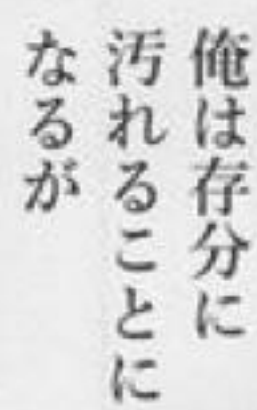 俺は存分に
汚れることに
なるが